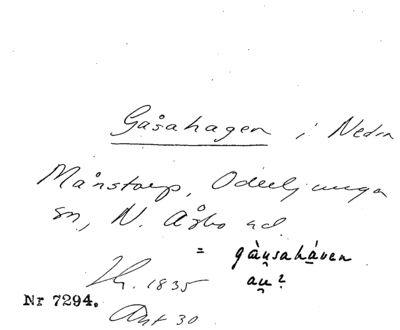 Gåsahagen i Nedra
Månstorp, Oderljunga
sn, N. Åsbo hd
= gàu̯sahá̠ven
1835 au̯?
Nr 7294.
Ant 30